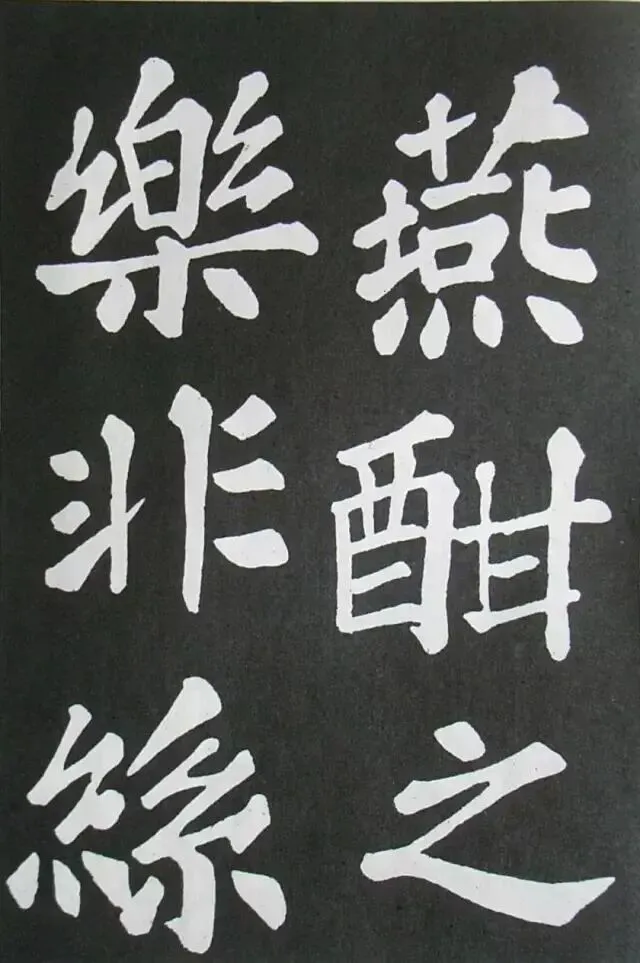 燕酣之
樂非絲